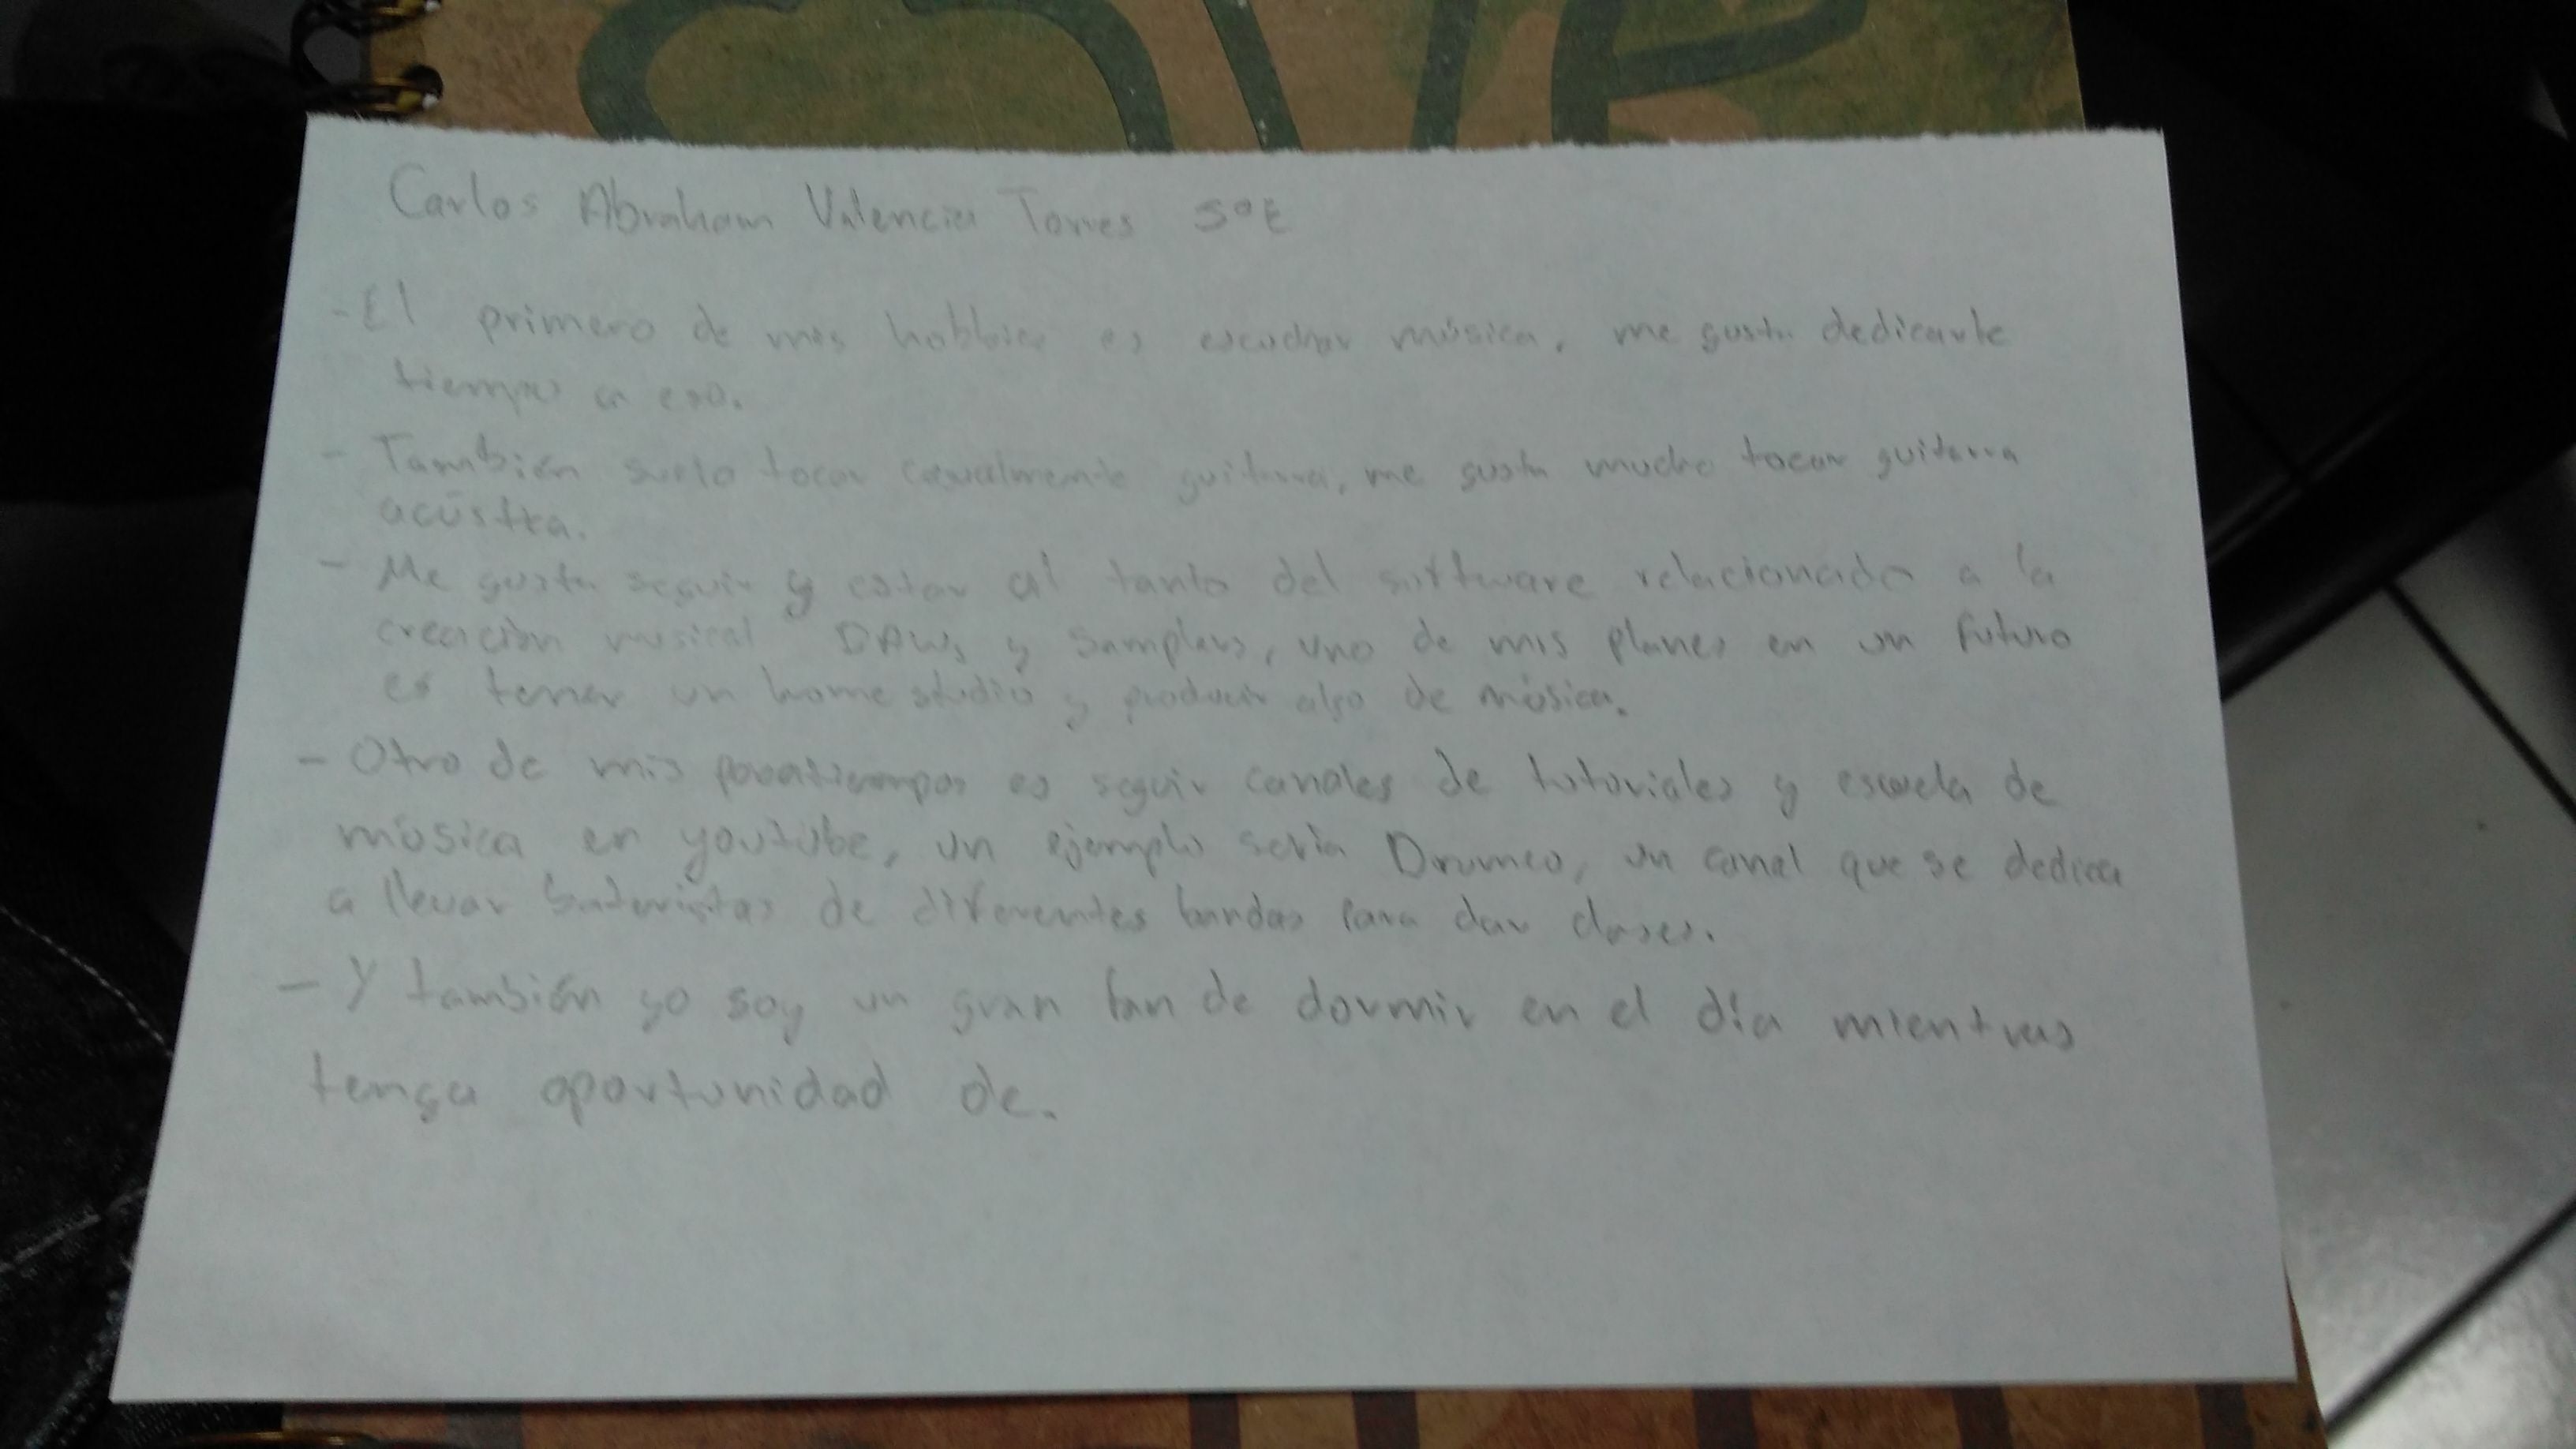 Carlos Abraham Valencia Torres 5°E
- El primero de mis hobbies es escuchar música, me gusta dedicarle
tiempo a eso.
- También suelo tocar casualmente guitarra, me gusta mucho tocar guitarra
acústica.
- Me gusta seguir y estar al tanto del software relacionado a la
creación musical DAWs y Samplers, uno de mis planes en un futuro
es tener un home studio y producir algo de música.
- Otro de mis pasatiempos es seguir canales de tutoriales y escuela de
música en youtube, un ejemplo sería Drumeo, un canal que se dedica
a llevar bateristas de diferentes bandas para dar clases.
- Y también yo soy un gran fan de dormir en el día mientras
tenga oportunidad de.